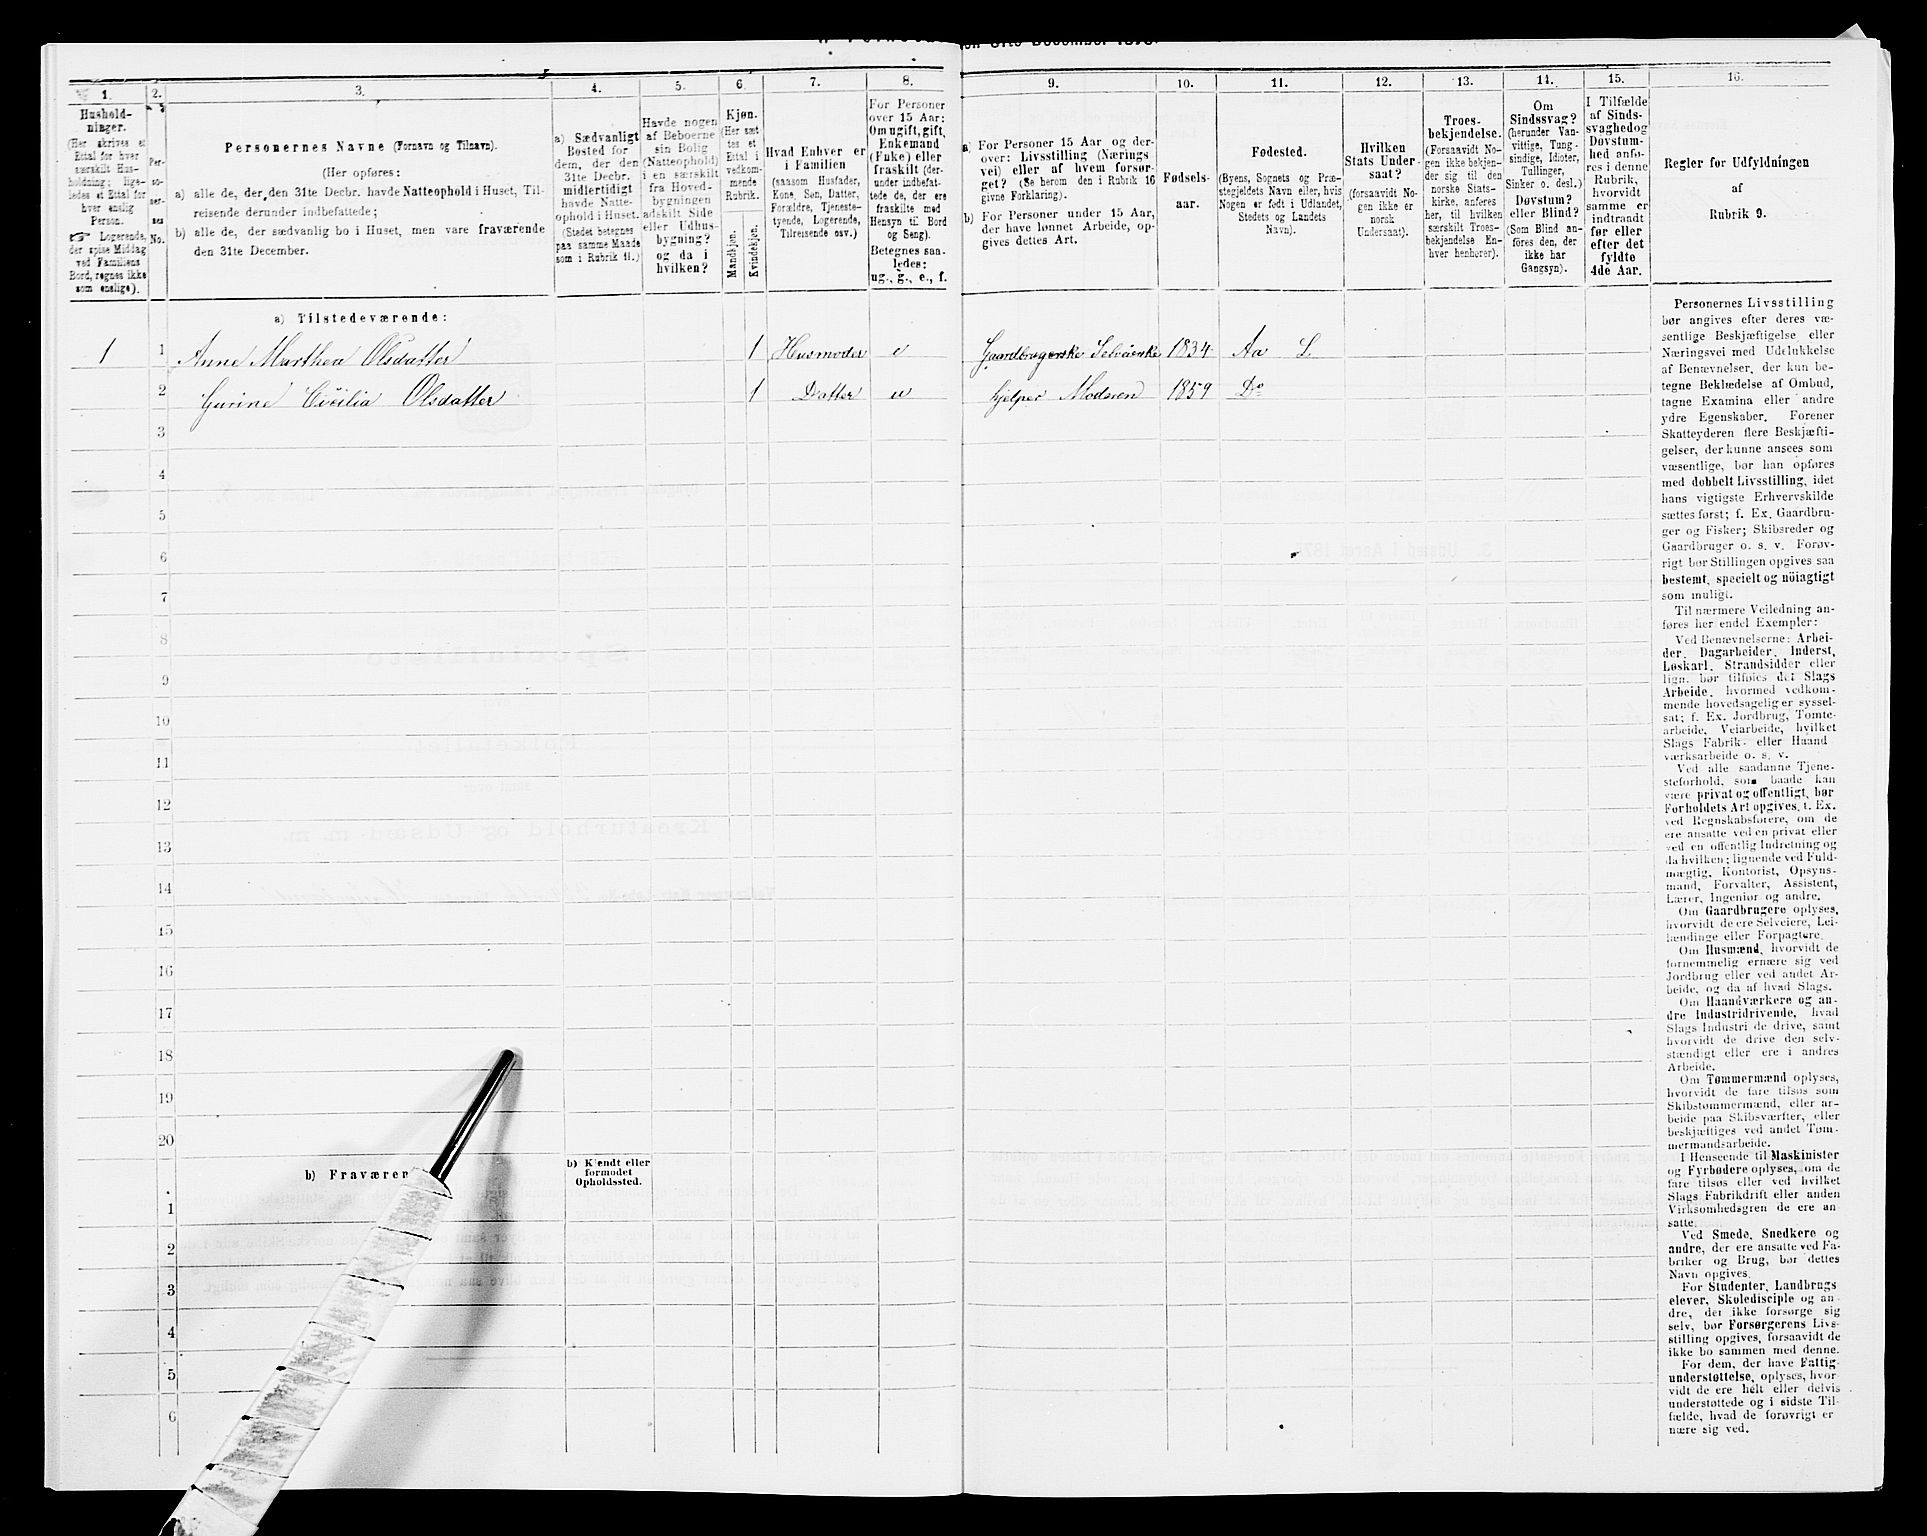 1.
Hushold-
ninger.
(Her skrives et
Ettal for hver
særskilt Hus-
holdning; lige-
ledes et Ettal for
hver enslig
Person.
☞ Logerende,
der spise Middag
ved Familiens
Bord, regnes ikke
som enslige).
2.
Per-
so-
ner-
nes
No.
3.
Personernes Navne (Fornavn og Tilnavn).
(Her opføres:
a) alle de, der den 31te Decbr. havde Natteophold i Huset, Til-
reisende derunder indbefattede;
b) alle de, der sædvanlig bo i Huset, men vare fraværende
den 31te December.
4.
a) Sædvanligt
Bosted for
dem, der den
31te Decbr.
midlertidigt
havde Natte-
ophold i Huset.
(Stedet betegnes
paa samme Maade
som i Rubrik 11.)
5.
Havde nogen
af Beboerne
sin Bolig
(Natteophold)
i en særskilt
fra Hoved-
bygningen
adskilt Side
eller Udhus-
bygning?
og da i
hvilken?
6.
Kjøn.
(Her sæt
tes et
Ettal i
vedkom-
mende
Rubrik.
Mandkjøn.
Kvindekjøn.
7.
Hvad Enhver er
i Familien
(saasom Husfader,
Kone, Søn, Datter,
Forældre, Tjeneste-
tyende, Logerende,
Tilreisende osv.)
8.
For Personer
over 15 Aar:
Om ugift, gift,
Enkemand
(Enke) eller
fraskilt (der-
under indbefat-
tede de, der ere
fraskilte med
Hensyn til Bord
og Seng).
Betegnes saa-
ledes:
ug., g., e., f.
9.
a) For Personer 15 Aar og der-
over: Livsstilling (Nærings
vei) eller af hvem forsør-
get? (Se herom den i Rubrik 16
givne Forklaring).
b) For Personer under 15 Aar,
der have lønnet Arbeide, op-
gives dettes Art.
10.
Fødsels-
aar.
11.
Fødested.
(Byens, Sognets og Præ-
stegjeldets Navn eller, hvis
Nogen er født i Udlandet,
Stedets og Landets
Navn).
12.
Hvilken
Stats Under-
saat?
(forsaavidt No-
gen ikke er
norsk
Undersaat).
13.
Troes-
bekjendelse.
(Forsaavidt No-
gen ikke bekjen-
der sig til den
norske Stats-
kirke, anføres
her, til hvilken
særskilt Troes-
bekjendelse En-
hver henhører).
14.
Om
Sindssvag?
(herunder Van-
vittige, Tung-
sindige, Idioter,
Tullinger,
Sinker o. desl.)
Døvstum?
eller Blind?
(Som Blind an-
føres den, der
ikke har
Gangsyn).
15.
I Tilfælde
af Sinds-
svaghed og
Døvstum-
hed anfø-
res i denne
Rubrik,
hvorvidt
samme er
indtraadt
før eller
efter det
fyldte
4de Aar.
16.
Regler for Udfyldningen
af
Rubrik 9.
a) Tilstedeværende:
1 1 Anne Marthea Olsdatter 1 Husmoder e Gaardbrugerske Selveierske 1834 Aa S.
2 Gurine Cicilia Olsdatter 1 Datter u hjelper Moderen 1859 Do
3
4
5
6
7
8
9
10
11
12
13
14
15
16
17
18
19
20
b) Fraværen
b) Kjendt eller
formodet
Opholdssted.
1
2
3
4
5
6
Personernes Livsstilling
bør angives efter deres væ-
sentlige Beskjæftigelse eller
Næringsvei med Udelukkelse
af Benævnelser, der kun be-
tegne Beklædelse af Ombud,
tagne Examina eller andre
ydre Egenskaber. Forener
Skatteyderen flere Beskjæfti-
gelser, der kunne ansees som
væsentlige, bør han opføres
med dobbelt Livsstilling, idet
hans vigtigste Erhvervskilde
sættes først; f. Ex. Gaardbru-
ger og Fisker; Skibsreder og
Gaardbruger o. s. v. Forøv-
rigt bør Stillingen opgives saa
bestemt, specielt og nøiagtigt
som muligt.
Til nærmere Veiledning an-
føres her endel Exempler:
Ved Benævnelserne: Arbei-
der, Dagarbeider, Inderst,
Løskarl, Strandsidder eller
lign. bør tilføies det Slags
Arbeide, hvormed vedkom-
mende hovedsagelig er syssel-
sat; f. Ex. Jordbrug, Tomte-
arbeide, Veiarbeide, hvilket
Slags Fabrik- eller Haand
værksarbeide o. s. v.
Ved alle saadanne Tjene-
steforhold, som baade kan
være privat og offentligt, bør
Forholdets Art opgives, f. Ex.
ved Regnskabsførere, om de
ere ansatte ved en privat eller
ved en offentlig Indretning og
da hvilken; lignende ved Fuld-
mægtig, Kontorist, Opsyns-
mand, Forvalter, Assistent,
Lærer, Ingeniør og andre.
Om Gaardbrugere oplyses,
hvorvidt de ere Selveiere, Lei-
lændinge eller Forpagtere.
Om Husmænd, hvorvidt de
fornemmelig ernære sig ved
Jordbrug eller ved andet Ar-
beide, og da af hvad Slags.
Om Haandværkere og an-
dre Industridrivende, hvad
Slags Industri de drive, samt
hvorvidt de drive den selv-
stændigt eller ere i andres
Arbeide.
Om Tømmermænd oplyses,
hvorvidt de fare tilsøs som
Skibstømmermænd, eller ar-
beide paa Skibsværfter, eller
beskjæftiges ved andet Tøm-
mermandsarbeide.
I Henseende til Maskinister
og Fyrbødere oplyses, om de
fare tilsøs eller ved hvilket
Slags Fabrikdrift eller anden
Virksomhedsgren de ere an-
satte.
Ved Smede, Snedkere og
andre, der ere ansatte ved Fa-
briker og Brug, bør dettes
Navn opgives.
For Studenter, Landbrugs
elever, Skoledisciple og an-
dre, der ikke forsørge sig
selv, bør Forsørgerens Livs-
stilling opgives, forsaavidt de
ikke bo sammen med denne.
For dem, der have Fattig-
understøttelse, oplyses, hvor-
vidt de ere helt eller delvis
understøttede og i sidste Til-
fælde, hvad de forøvrigt er
nære sig ved.